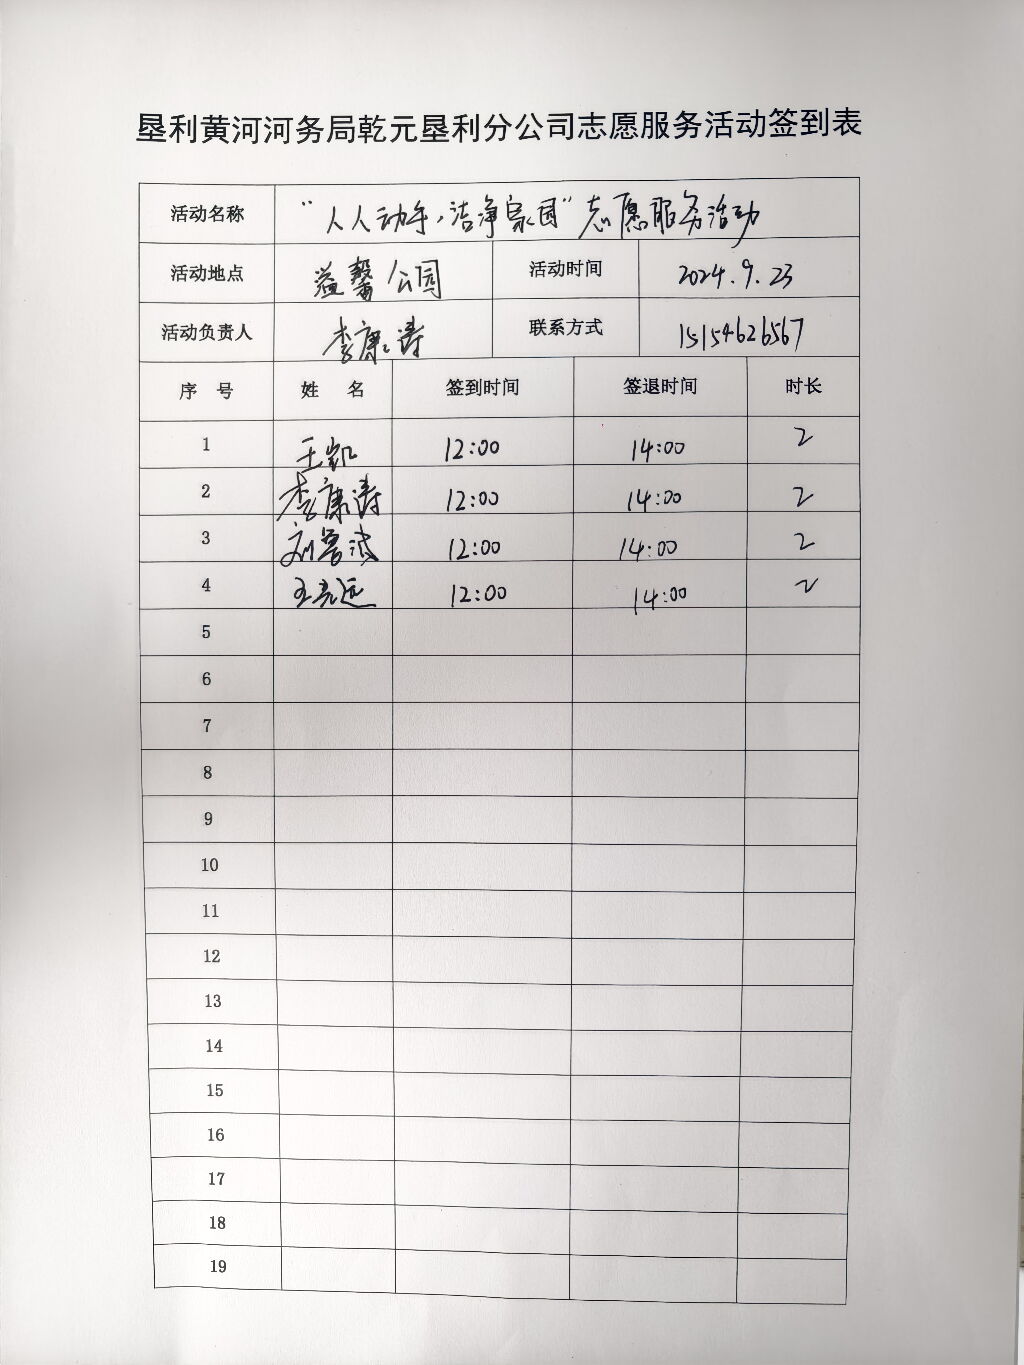 垦利黄河河务局乾元垦利分公司志愿服务活动签到表
活动名称 “人人动手,洁净家园”志愿服务活动
活动地点 益馨公园 活动时间 2024.9.23
活动负责人 李康涛 联系方式 15154626567
序 号 姓 名 签到时间 签退时间 时长
1 王凯 12:00 14:00 2
2 李康涛 12:00 14:00 2
3 刘曾 12:00 14:00 2
4 王亮远 12:00 14:00 2
5
6
7
8
9
10
11
12
13
14
15
16
17
18
19